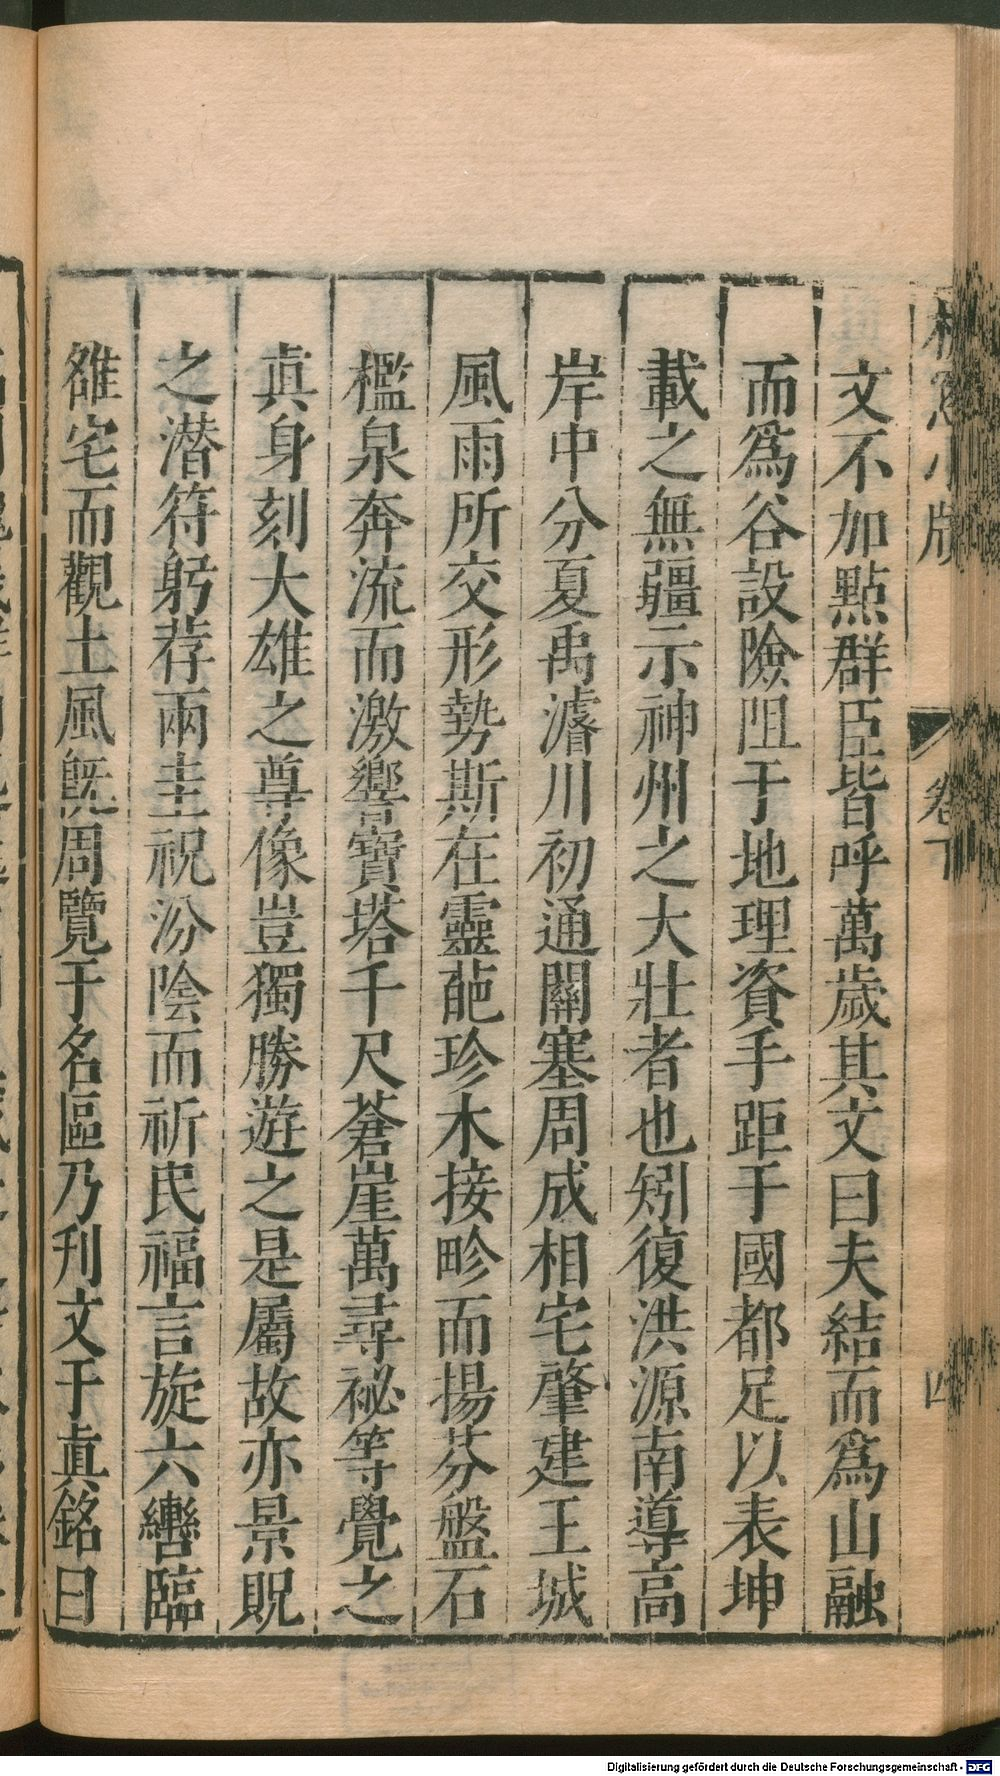 文不加點群臣皆呼萬歲其文曰夫結而爲山融
而爲谷設險阻于地理資手距于國都足以表坤
載之無疆示神州之大壯者也矧復洪源南導高
岸中分夏禹濬川初通關塞周成相宅肇建王城
風雨所交形勢斯在靈葩珍木接畛而揚芬盤石
檻泉奔流而激響寶塔千尺蒼崖萬尋祕等覺之
眞身刻大雄之尊像豈獨勝遊之是屬故亦景貺
之潜符躬荐兩圭祝汾陰而祈民福言旋六轡臨
雒宅而觀土風旣周覽于名區乃刊文于眞銘曰
卷下
四
Digitalisierung gefördert durch die Deutsche Forschungsgemeinschaft - DFG